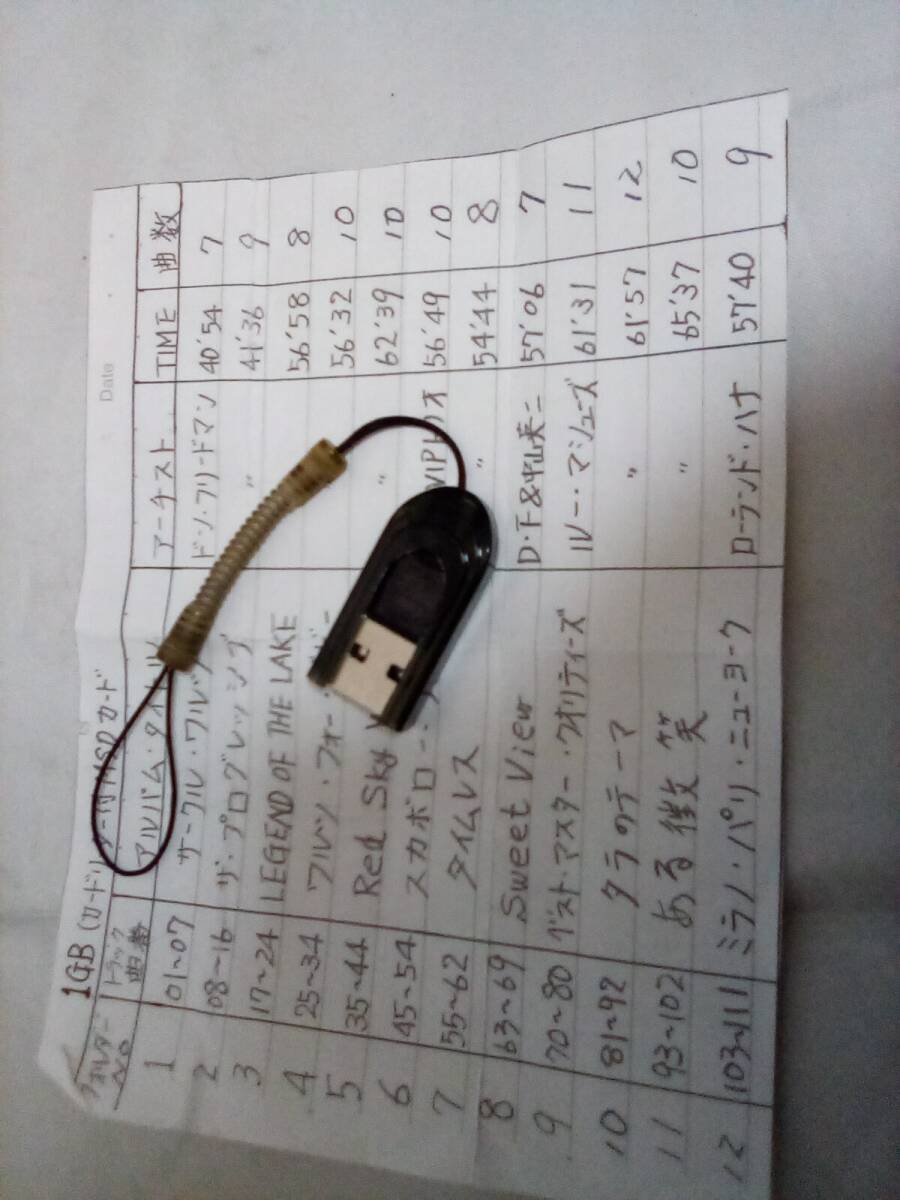 Date
1GB (カードリーダー付MSDカード
フォルダー No トラック 曲番 アルバム・タイトル アーチスト TIME 曲数
1 01~07 サークル・ワルツ ドン・フリードマン 40'54 7
2 08~16 ザ・プログレッシブ 〃 41'36 9
3 17~24 LEGEND OF THE LAKE 56'58 8
4 25~34 ワルツ・フォー 56'32 10
5 35~44 Red Sky 〃 62'39 10
6 45~54 スカボロー・ VIPトリオ 56'49 10
7 55~62 タイムレス 〃 54'44 8
8 63~69 Sweet View D・F&中山英二 57'06 7
9 70~80 ベスト・マスター・クオリティーズ ルー・マシューズ 61'31 11
10 81~92 タラのテーマ 〃 61'57 12
11 93~102 ある微笑 〃 65'37 10
12 103~111 ミラノ・パリ・ニューヨーク ローランド・ハナ 57'40 9